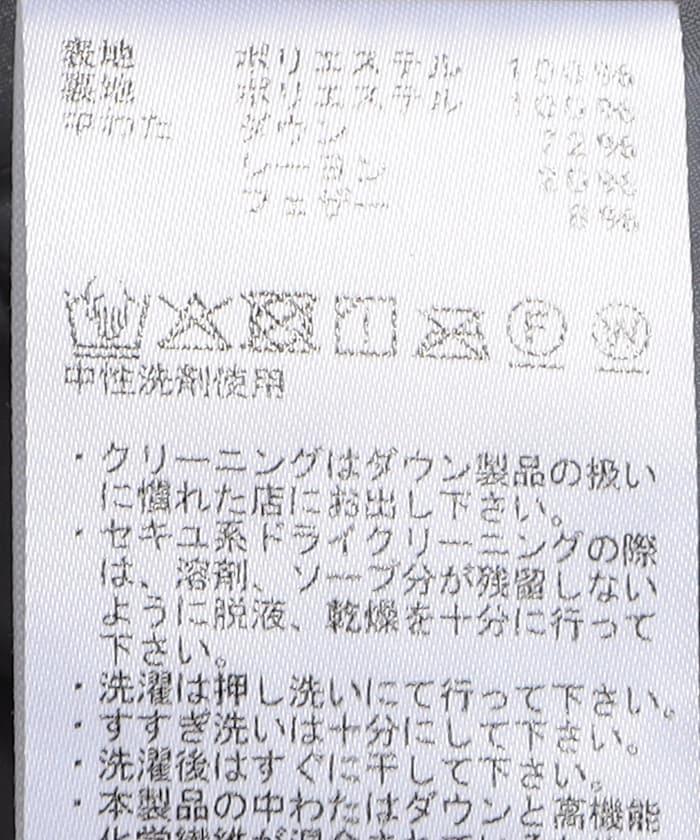 表地 ポリエステル 100%
裏地 ポリエステル 100%
中わた ダウン 72%
レーヨン 20%
フェザー 8%
F W
中性洗剤使用
・クリーニングはダウン製品の扱い
に慣れた店にお出し下さい。
・セキユ系ドライクリーニングの際
は、溶剤、ソープ分が残留しない
ように脱液、乾燥を十分に行って
下さい。
・洗濯は押し洗いにて行って下さい。
・すすぎ洗いは十分にして下さい。
・洗濯後はすぐに干して下さい。
・本製品の中わたはダウンと高機能